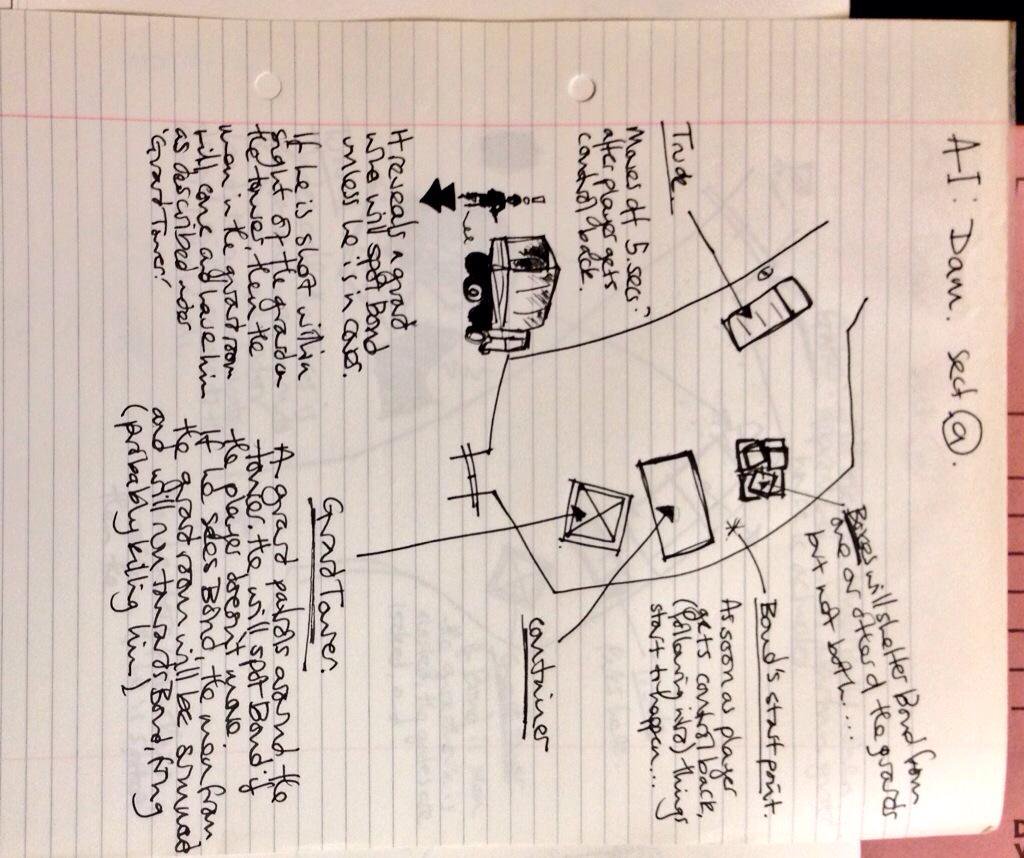 A-I: Dam. sect (a).
Boxes will shelter Bond from
one or other of the guards
but not both....
Truck.
Moves off 5 secs
after player gets
control back.
Bond's start point.
As soon as player
gets control back,
(following intro) things
start to happen...
It reveals a guard
who will spot Bond
unless he is in cover.
container
If he is shot within
sight of the guard on
the tower, then the
men in the guard room
will come and have him
as described under
'Guard Tower.'
Guard Tower.
A guard patrols around the
tower. He will spot Bond if
the player doesn't move.
If he sides Bond, the men from
the guard room will be summoned
and will run towards Bond, firing
(probably killing him)